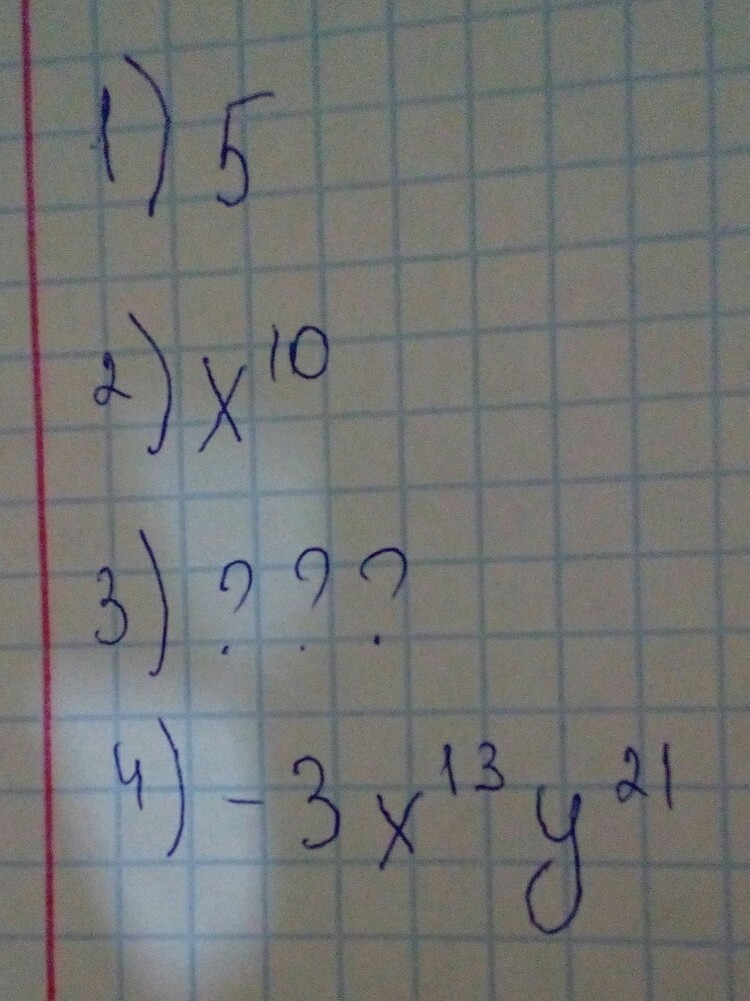 1) 5
2) x¹⁰
3) ? ? ?
4) - 3x¹³y²¹